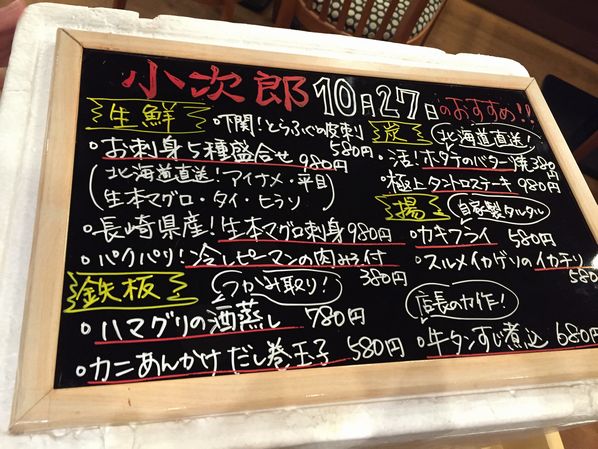 小次郎 10月27日のおすすめ!!
生鮮
下関!とらふぐの皮刺 580円
お刺身5種盛合せ 980円
(北海道直送!アイナメ・平目
生本マグロ・タイ・ヒラソ)
長崎県産!生本マグロ刺身 980円
パクパリ!冷しピーマンの肉みそ付 380円
鉄板
つかみ取り!
ハマグリの酒蒸し 780円
カニあんかけだし巻玉子 580円
炭
北海道直送!
活!ホタテのバター焼 380円
極上タントロステーキ 980円
揚
自家製タルタル
カキフライ 580円
スルメイカゲソのイカチリ 580
店長の力作!
牛タンすじ煮込 680円